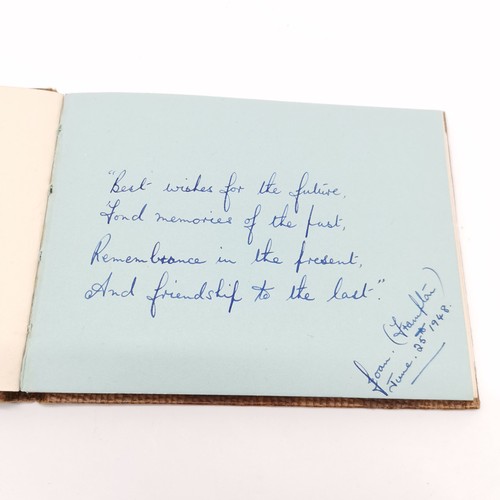 "Best wishes for the future,
Fond memories of the past,
Remembrance in the present,
And friendship to the last."
Joan. (Frampton)
June. 25th 1948.